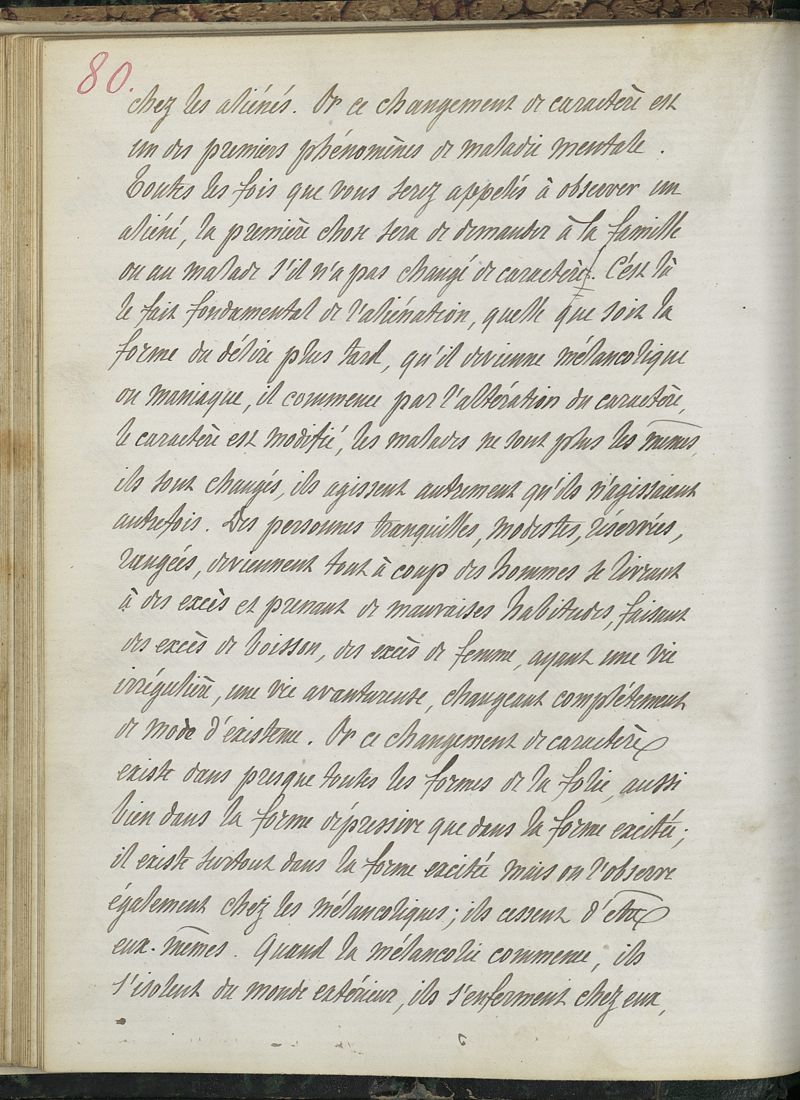 80.
chez les aliénés. Or ce changement de caractère est
un des premiers phénomènes de maladie mentale.
Toutes les fois que vous serez appelés à observer un
aliéné, la première chose sera de demander à la famille
ou au malade s'il n'a pas changé de caractère. C'est là
le fait fondamental de l'aliénation, quelle que soit la
forme du délire plus tard, qu'il devienne mélancolique
ou maniaque, il commence par l'altération du caractère,
le caractère est modifié, les malades ne sont plus les mêmes,
ils sont changés, ils agissent autrement qu'ils n'agissaient
autrefois. Des personnes tranquilles, modestes, réservées,
rangées, deviennent tout à coup des hommes se livrant
à des excès et prenant de mauvaises habitudes, faisant
des excès de boisson, des excès de femme, ayant une vie
irrégulière, une vie avantureuse, changeant complétement
de mode d'existence. Or ce changement de caractère
existe dans presque toutes les formes de la folie, aussi
bien dans la forme dépressive que dans la forme excitée;
il existe surtout dans la forme excitée mais on l'observe
également chez les mélancoliques; ils cessent d'être
eux-mêmes. Quand la mélancolie commence, ils
s'isolent du monde extérieur, ils s'enferment chez eux,